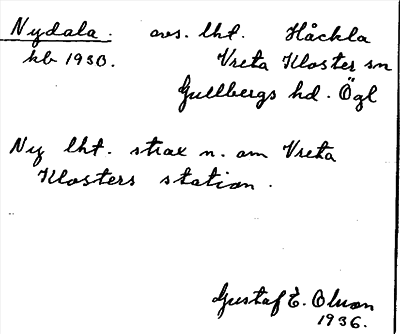 Nydala. avs. lht. Håckla
kb 1930. Vreta Kloster sn
Gullbergs hd. Ögl
Ny lht. strax n. om Vreta
Klosters station.
Gustaf E. Olson
1936.